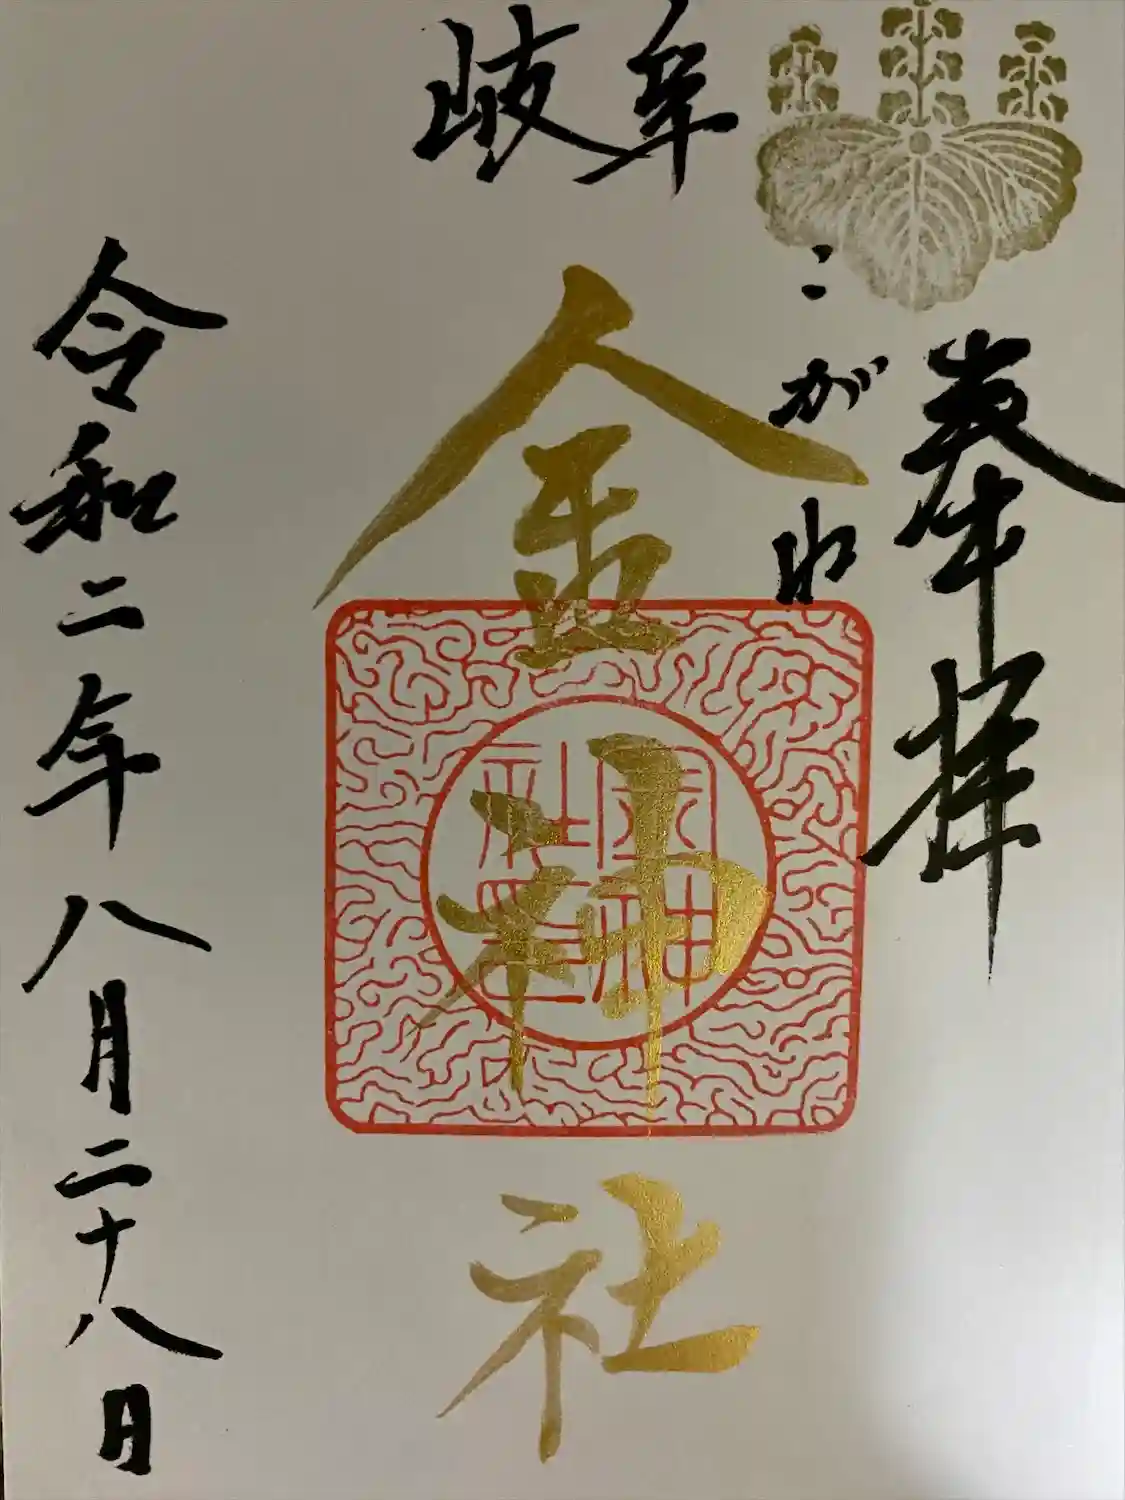 岐阜
奉拝
こがね
金神社
金神
社
令和二年八月二十八日